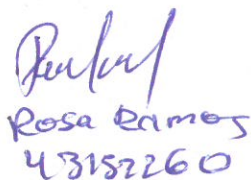 Rosa Ramos
43152260